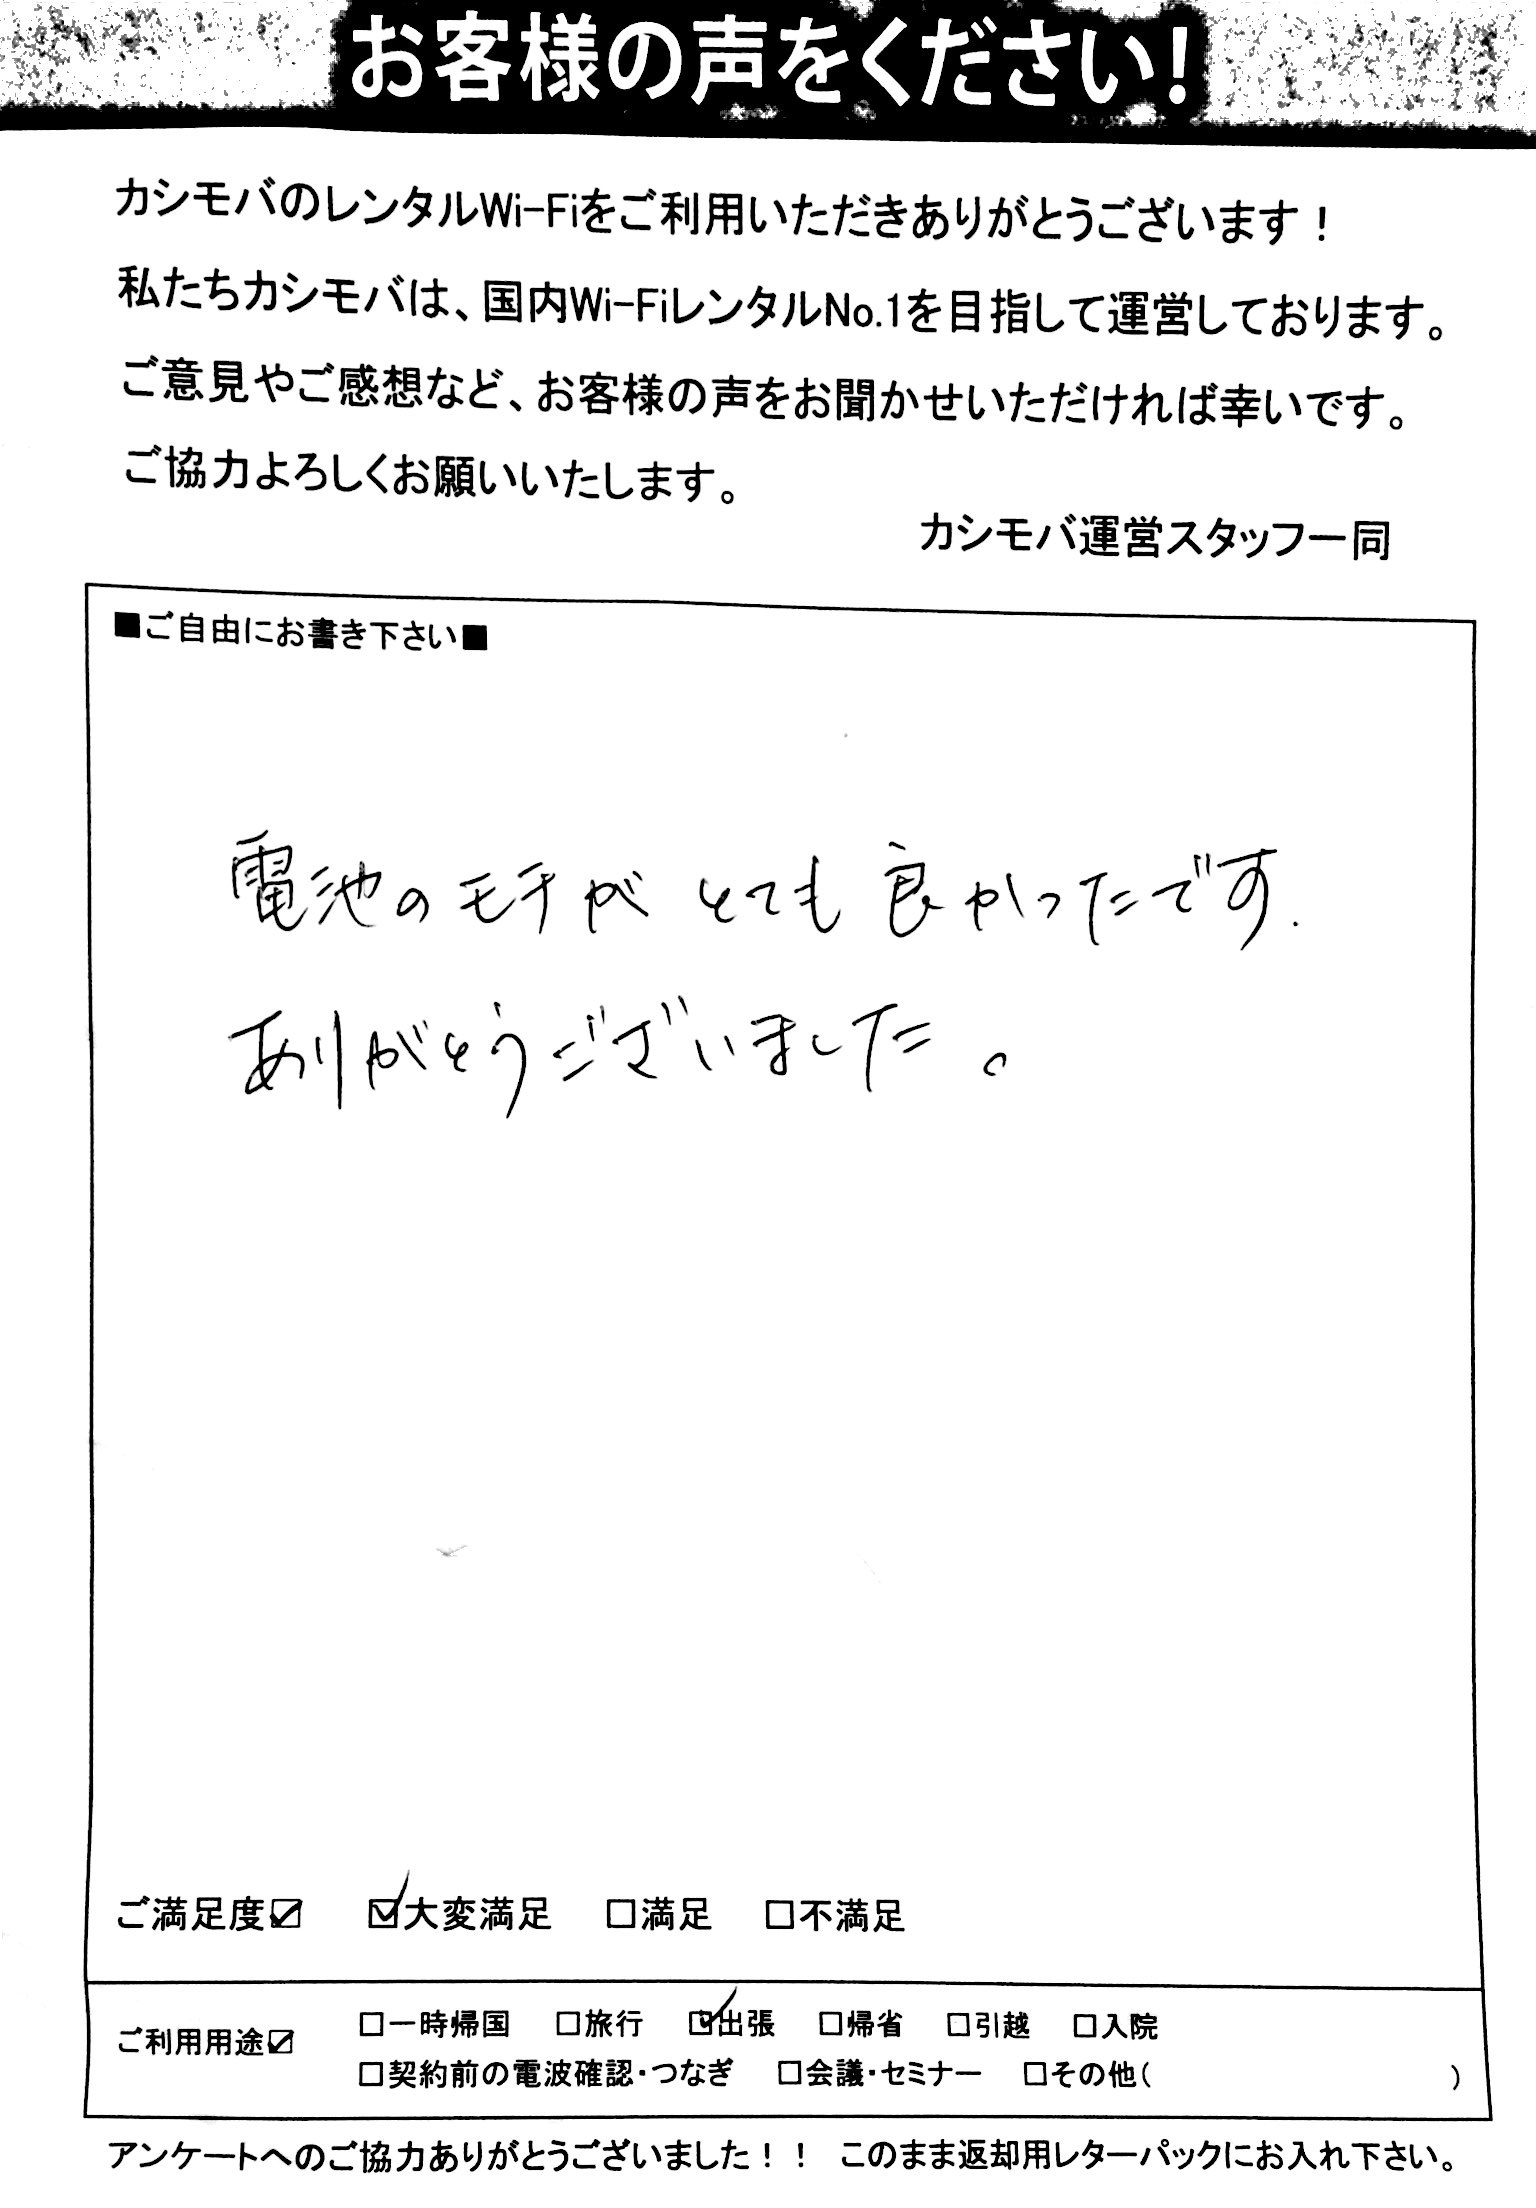 お客様の声をください!
カシモバのレンタルWi-Fiをご利用いただきありがとうございます！
私たちカシモバは、国内Wi-FiレンタルNo.1を目指して運営しております。
ご意見やご感想など、お客様の声をお聞かせいただければ幸いです。
ご協力よろしくお願いいたします。
カシモバ運営スタッフ一同
■ご自由にお書き下さい■
電池のモチがとても良かったです.
ありがとうございました。
ご満足度☑ ☑大変満足 □満足 □不満足
ご利用用途☑ □一時帰国 □旅行 ☑出張 □帰省 □引越 □入院
□契約前の電波確認・つなぎ □会議・セミナー □その他( )
アンケートへのご協力ありがとうございました！！ このまま返却用レターパックにお入れ下さい。